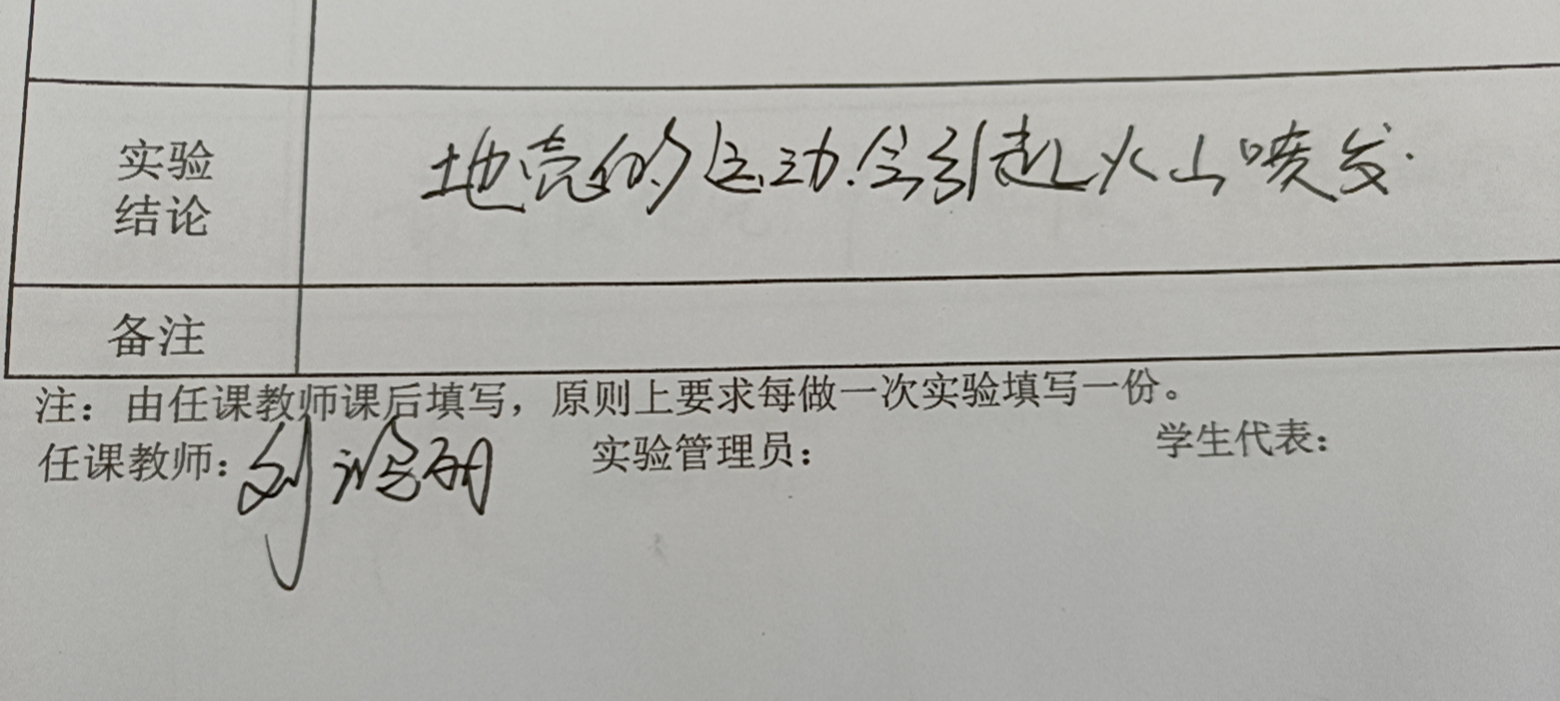 实验
结论
地壳的运动会引起火山喷发.
备注
注：由任课教师课后填写，原则上要求每做一次实验填写一份。
任课教师：刘 实验管理员： 学生代表：